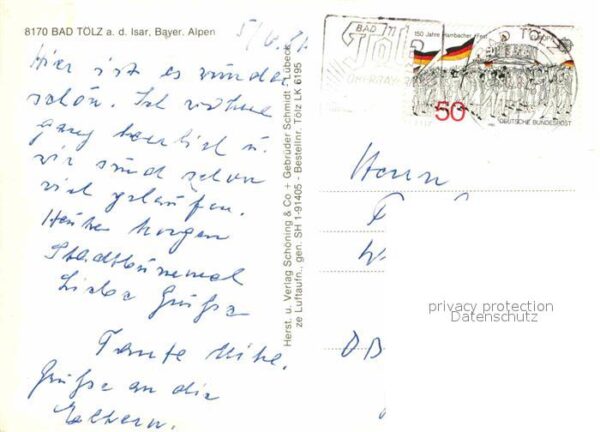 8170 BAD TÖLZ a. d. Isar, Bayer. Alpen
5/6.
Hier ist es wunder
schön. Ich wohne
ganz herrlich u.
wir sind schon
viel gelaufen.
Heute Morgen
Stadtbummel
Liebe Grüße
Tante
Grüße an die
Eltern.
Herst. u. Verlag Schöning & Co + Gebrüder Schmidt - Lübeck
ze Luftaufn., gen. SH 1-91405 - Bestellnr. Tölz LK 6195
BAD
TÖLZ
150 Jahre Hambacher Fest
50
DEUTSCHE BUNDESPOST
TÖLZ
Herrn
F
privacy protection
Datenschutz